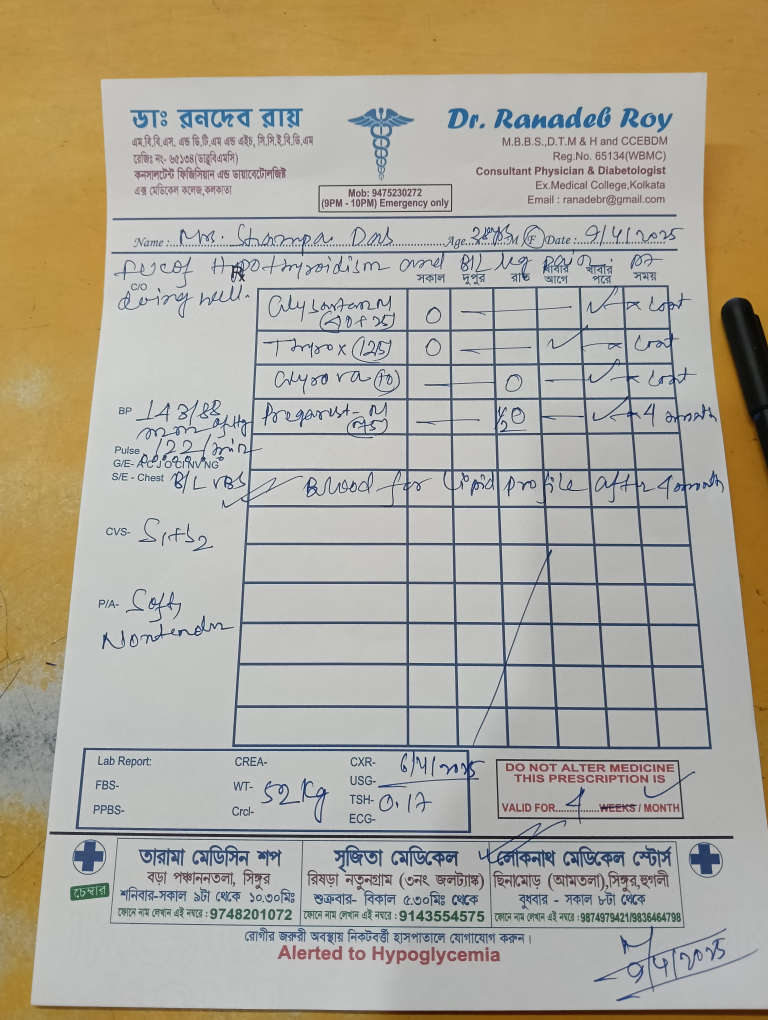 ডাঃ রনদেব রায়
এম.বি.বি.এস, এন্ড ডি.টি.এম এন্ড এইচ, সি.সি.ই.বি.ডি.এম
রেজিঃ নং- ৬৫১৩৪(ডাব্লুবিএমসি)
কনসালটেন্ট ফিজিসিয়ান এন্ড ডায়াবেটোলজিষ্ট
এক্স মেডিকেল কলেজ,কলকাতা
Mob: 9475230272
(9PM - 10PM) Emergency only
Dr. Ranadeb Roy
M.B.B.S.,D.T.M & H and CCEBDM
Reg.No. 65134(WBMC)
Consultant Physician & Diabetologist
Ex.Medical College,Kolkata
Email : ranadebr@gmail.com
Name : Mrs. Shampa Das Age M F Date : 9/4/2025
Hypothyroidism and B/L leg pain. Pt
C/O doing well.
সকাল দুপুর রাত খাবার আগে খাবার পরে সময়
M O — — ✓ x Cont
Thyrox (125) O — ✓ — x Cont
(10) — O — ✓ x Cont
BP 143/88 mm of Hg
M (75) — 1/2 O — ✓ x 4 month
Pulse 122/min
G/E- A C J O CI NV NG
S/E - Chest B/L VBS
Blood for Lipid profile after 4 month
CVS- S1+S2
P/A- Soft, Nontender
Lab Report: CREA- CXR- 6/4/2025
FBS- WT- 52 Kg USG-
PPBS- Crcl- TSH- 0.17
ECG-
DO NOT ALTER MEDICINE
THIS PRESCRIPTION IS
VALID FOR 4 WEEKS / MONTH
চেম্বার
তারামা মেডিসিন শপ
বড়া পঞ্চাননতলা, সিঙ্গুর
শনিবার-সকাল ৯টা থেকে ১০.৩০মিঃ
ফোনে নাম লেখান এই নম্বরে : 9748201072
সৃজিতা মেডিকেল
রিষড়া নতুনগ্রাম (৩নং জলট্যাঙ্ক)
শুক্রবার- বিকাল ৫.৩০মিঃ থেকে
ফোনে নাম লেখান এই নম্বরে : 9143554575
লোকনাথ মেডিকেল স্টোর্স
ছিনামোড় (আমতলা),সিঙ্গুর,হুগলী
বুধবার - সকাল ৮টা থেকে
ফোনে নাম লেখান এই নম্বরে : 9874979421/9836464798
রোগীর জরুরী অবস্থায় নিকটবর্ত্তী হাসপাতালে যোগাযোগ করুন।
Alerted to Hypoglycemia
9/4/2025